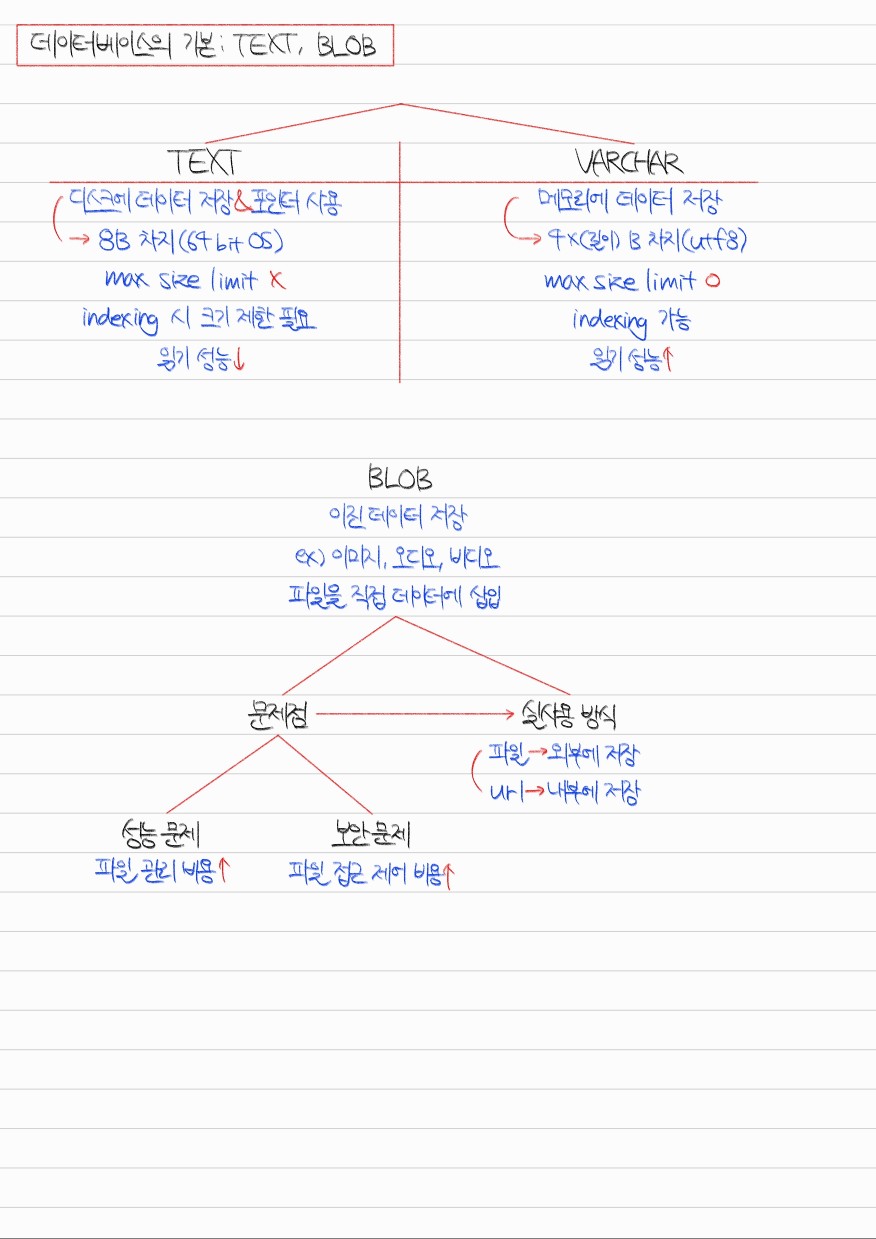 데이터베이스의 기본: TEXT, BLOB
TEXT
디스크에 데이터 저장&포인터 사용
→ 8B 차지(64bit OS)
max size limit X
indexing 시 크기 제한 필요
읽기 성능↓
VARCHAR
메모리에 데이터 저장
→ 4×(길이) B 차지(utf8)
max size limit O
indexing 가능
읽기 성능↑
BLOB
이진 데이터 저장
ex) 이미지, 오디오, 비디오
파일을 직접 데이터에 삽입
문제점 → 실사용 방식
파일→외부에 저장
url→내부에 저장
성능 문제
파일 관리 비용↑
보안 문제
파일 접근 제어 비용↑